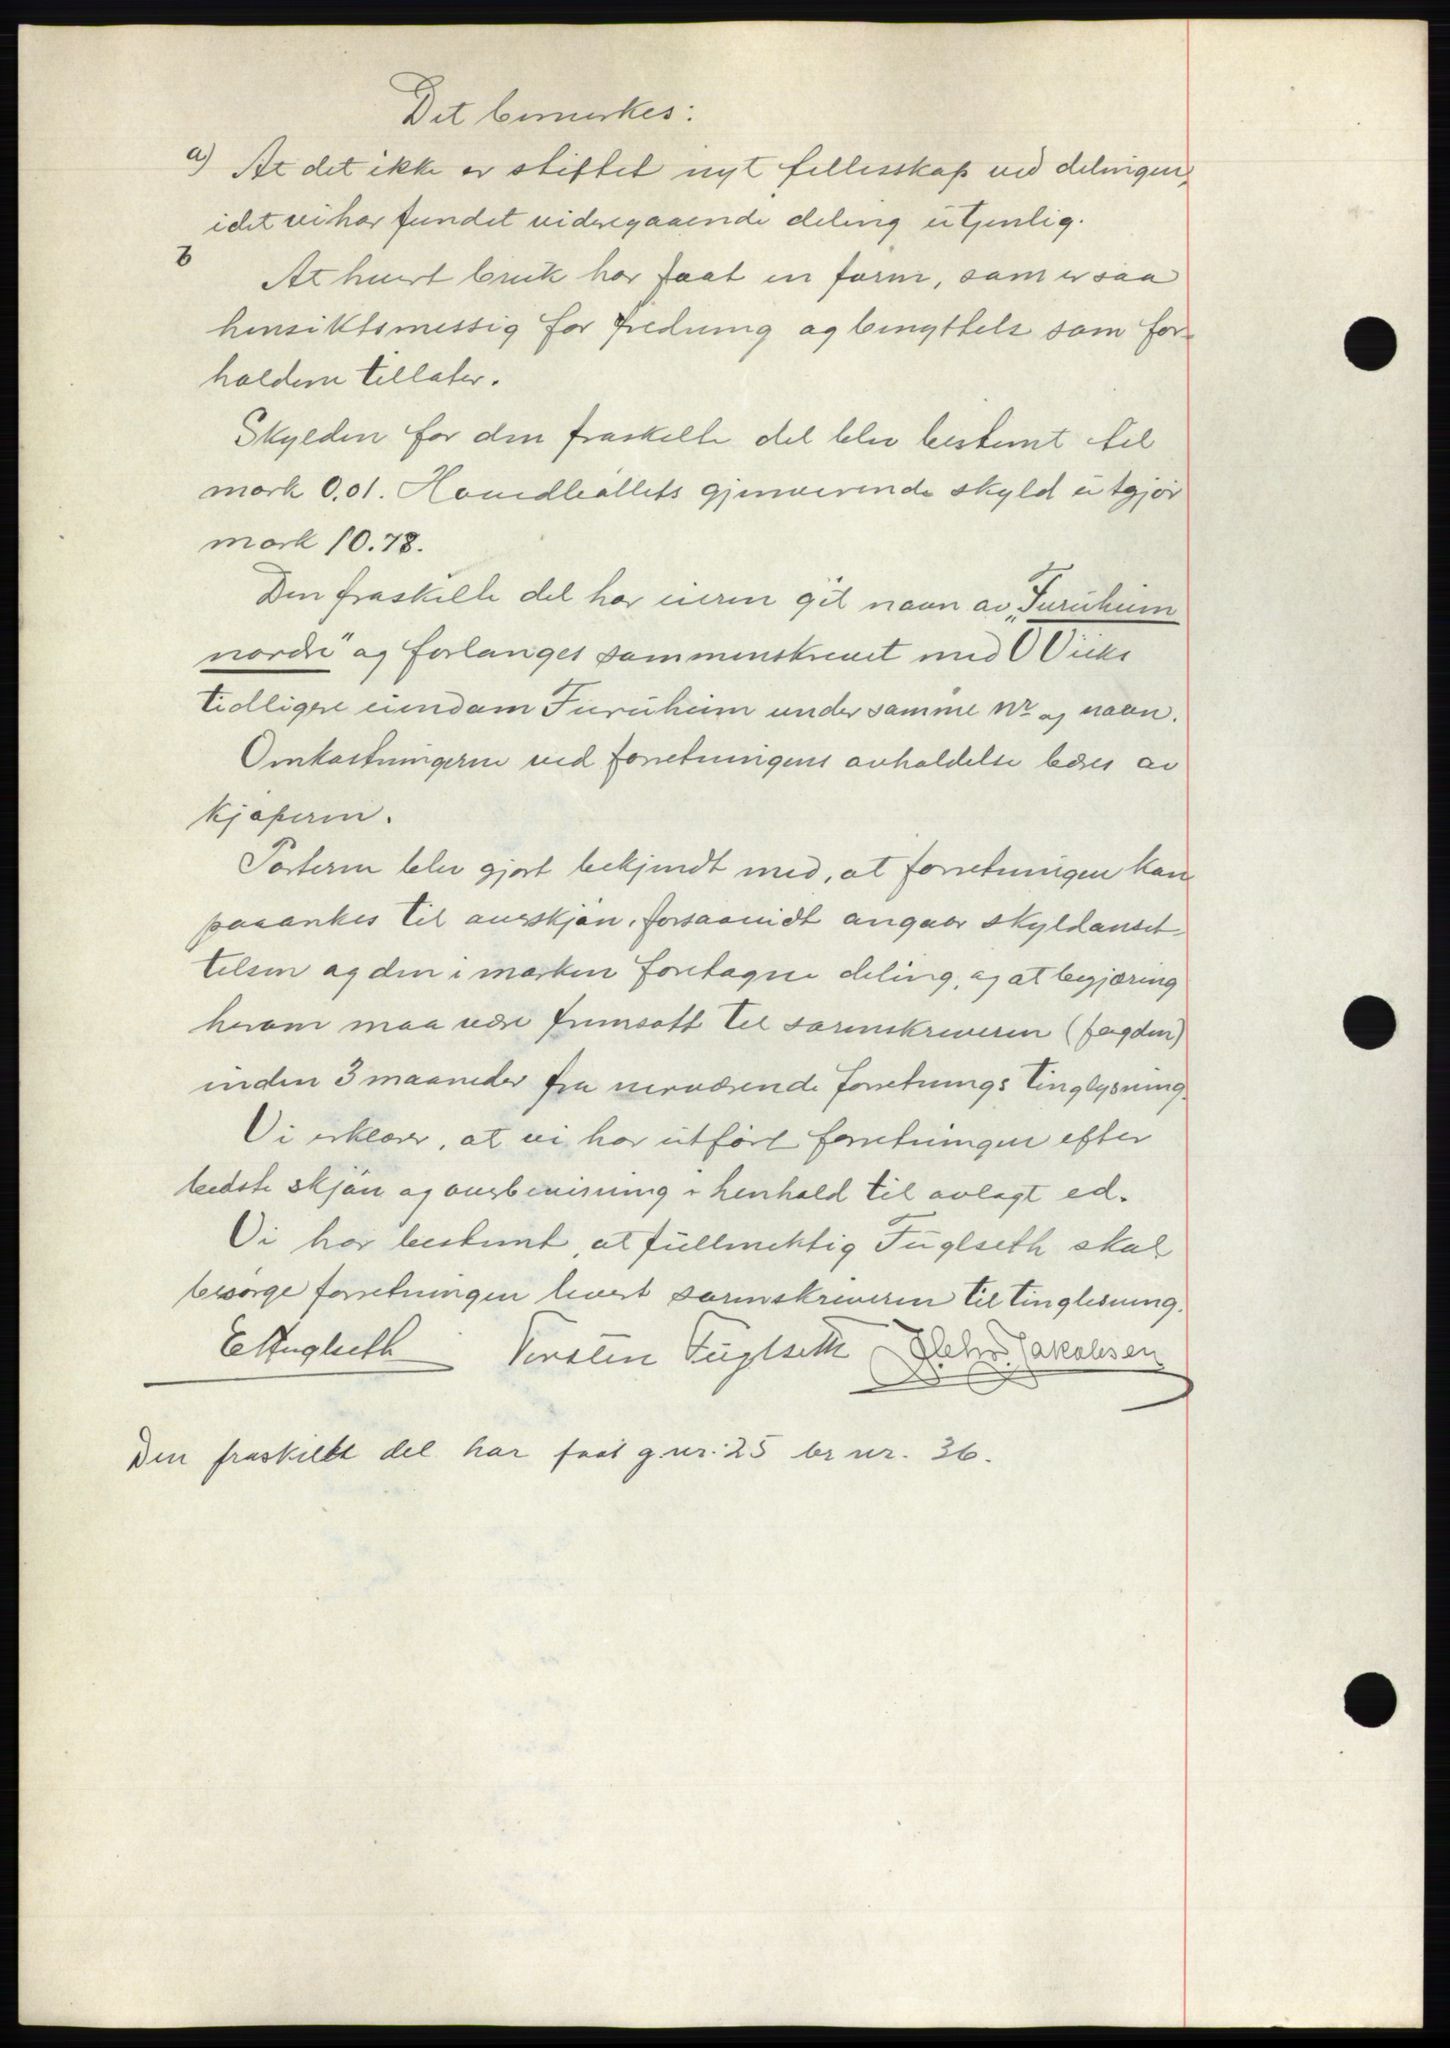 Det bemerkes:
a) At det ikke er stiftet nyt fellesskap ved delingen,
idet vi har fundet videregaaende deling utjenlig.
b At hvert bruk har faat en form, som er saa
hensiktsmessig for fredning og benyttelse som for-
holdene tillater.
Skylden for den fraskilte del blev bestemt til
mark 0.01. Hovedbøllets gjenverende skyld utgjør
mark 10.78.
Den fraskilte del har eieren git navn av „Furuheim
nordre" og forlanges sammenskrevet med O Vicks
tidligere eiendom Furuheim under samme nr og navn.
Omkostningerne ved forretningens avholdelse bæres av
kjøperen.
Parterne blev gjort bekjendt med, at forretningen kan
paaankes til overskjøn, forsaavidt angaar skyldanset-
telsen og den i marken foretagne deling, og at begjæring
herom maa være fremsatt til sorenskriveren (fogden)
inden 3 maaneder fra nerværende forretnings tinglysning.
Vi erklærer, at vi har utført forretningen efter
bedste skjøn og overbevisning i henhold til avlagt ed.
Vi har bestemt, at fullmektig Fuglseth skal
besørge forretningen levert sorenskriveren til tinglesning.
E Fuglseth Torstein Fuglseth Jakobsen
Den fraskilte del har faat g.nr. 25 br nr. 36.